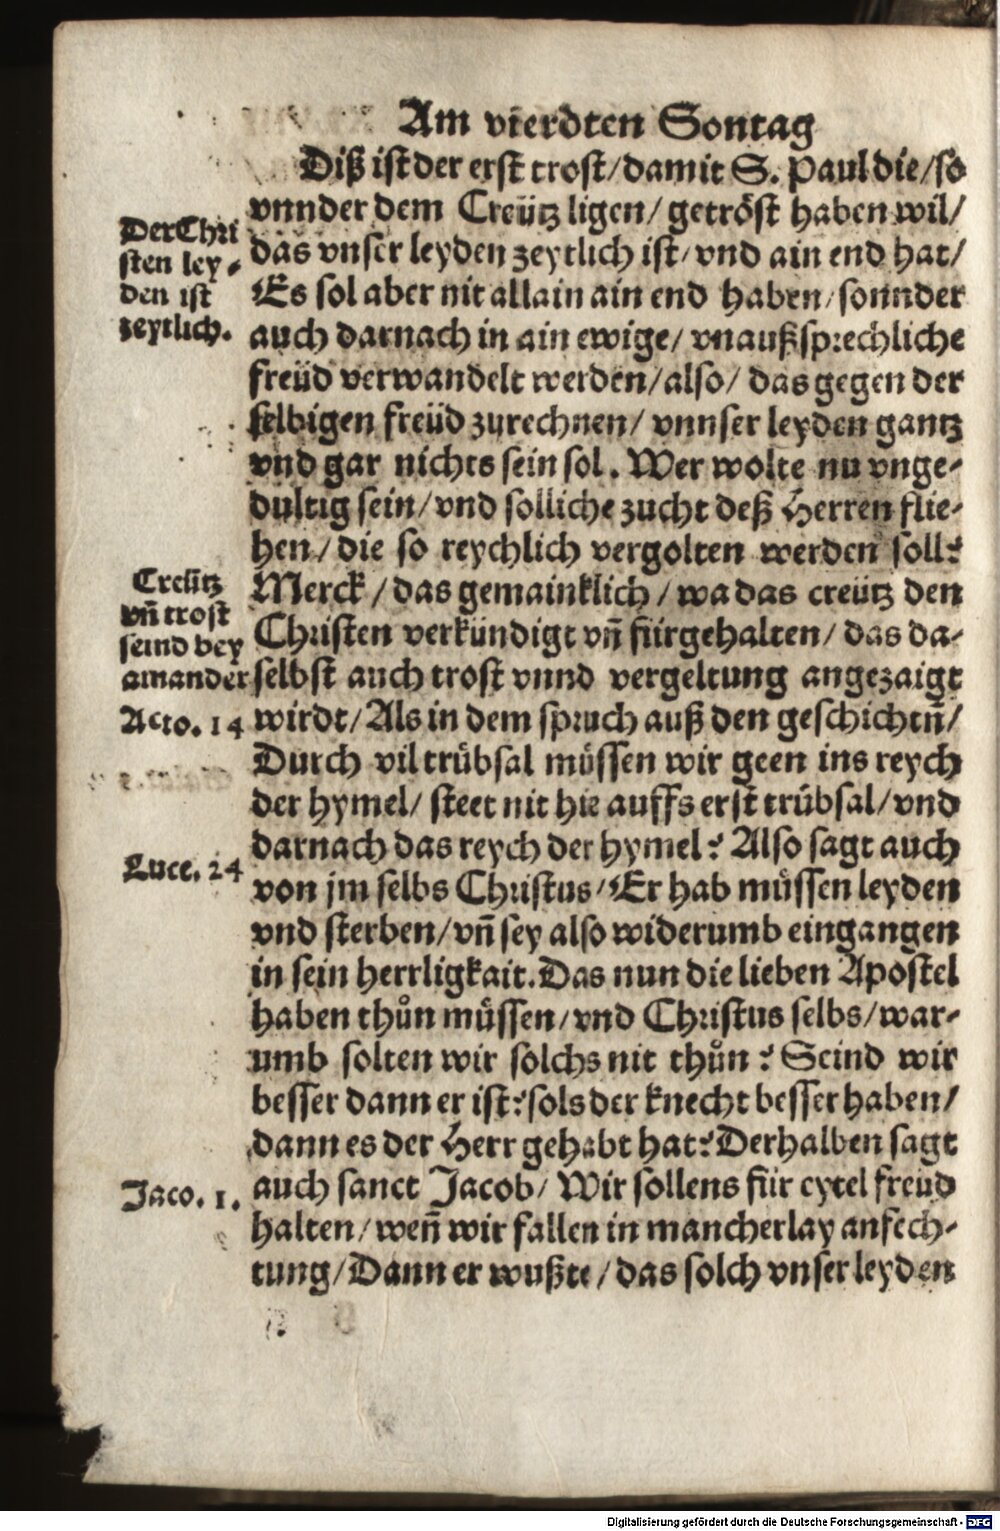 Am vierdten Sontag
Diß ist der erst trost/damit S. Paul die/so
vnnder dem Creütz ligen/ getröst haben wil/
das vnser leyden zeytlich ist/ vnd ain end hat/
Es sol aber nit allain ain end haben/sonnder
auch darnach in ain ewige/ vnaußsprechliche
freüd verwandelt werden/also/ das gegen der
selbigen freüd zurechnen/ vnnser leyden gantz
vnd gar nichts sein sol. Wer wolte nu vnge-
dultig sein/vnd solliche zucht deß Herren flie-
hen/die so reychlich vergolten werden soll?
Merck/das gemainklich/wa das creütz den
Christen verkündigt vñ fürgehalten/ das da-
selbst auch trost vnnd vergeltung angezaigt
wirdt/Als in dem spruch auß den geschichtñ/
Durch vil trübsal müssen wir geen ins reych
der hymel/ steet nit hie auffs erst trübsal/vnd
darnach das reych der hymel? Also sagt auch
von jm selbs Christus/Er hab müssen leyden
vnd sterben/vñ sey also widerumb eingangen
in sein herrligkait. Das nun die lieben Apostel
haben thůn müssen/vnd Christus selbs/war-
umb solten wir solchs nit thůn? Seind wir
besser dann er ist? sols der knecht besser haben/
dann es der Herr gehabt hat? Derhalben sagt
auch sanct Jacob/ Wir sollens für eytel freüd
halten/weñ wir fallen in mancherlay anfech-
tung/Dann er wußte/das solch vnser leyden
Der Chri
sten ley-
den ist
zeytlich.
Creütz
vñ trost
seind bey
ainander
Acto. 14
Luce. 24
Jaco. 1.
Digitalisierung gefördert durch die Deutsche Forschungsgemeinschaft - DFG